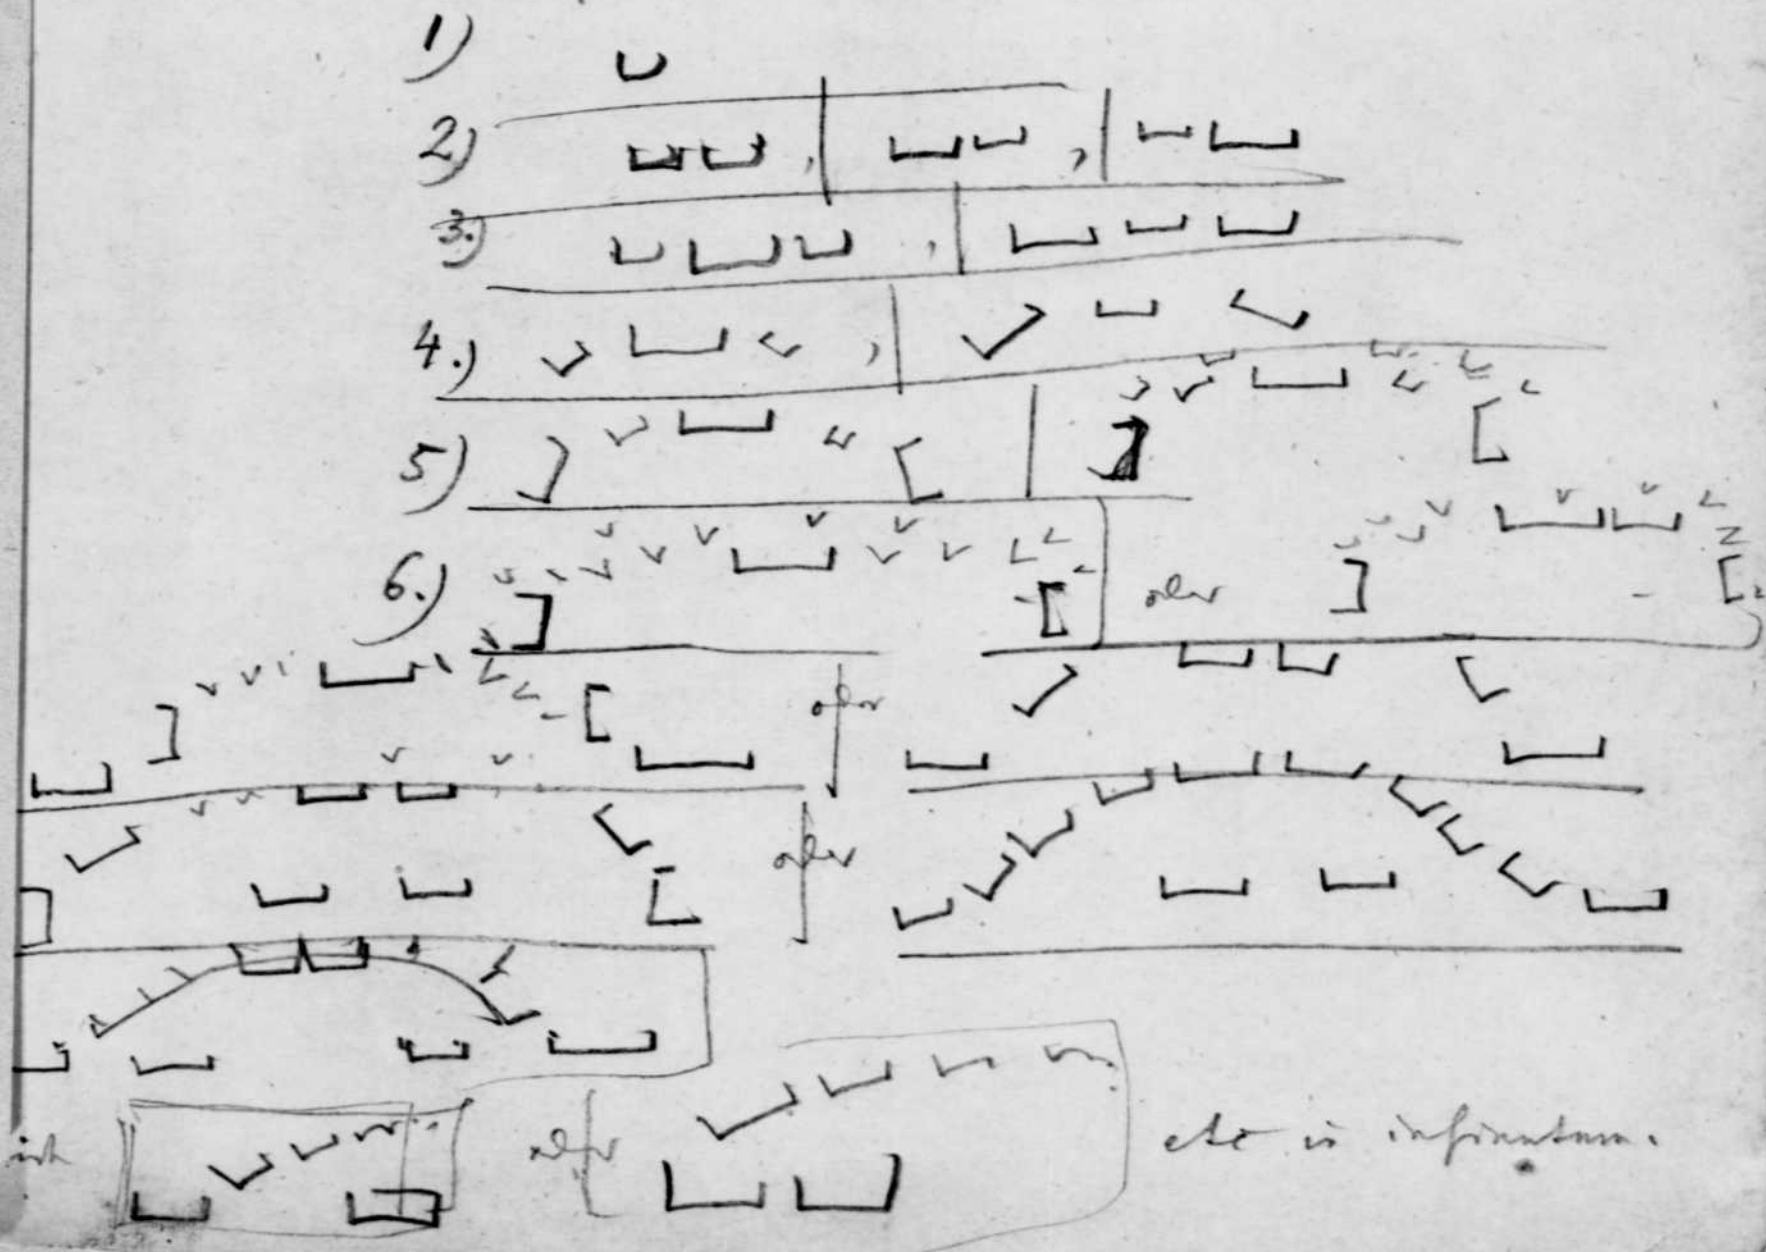 1)
2)
3.)
4.)
5)
6.) oder
oder
oder
oder etc in infinitum.